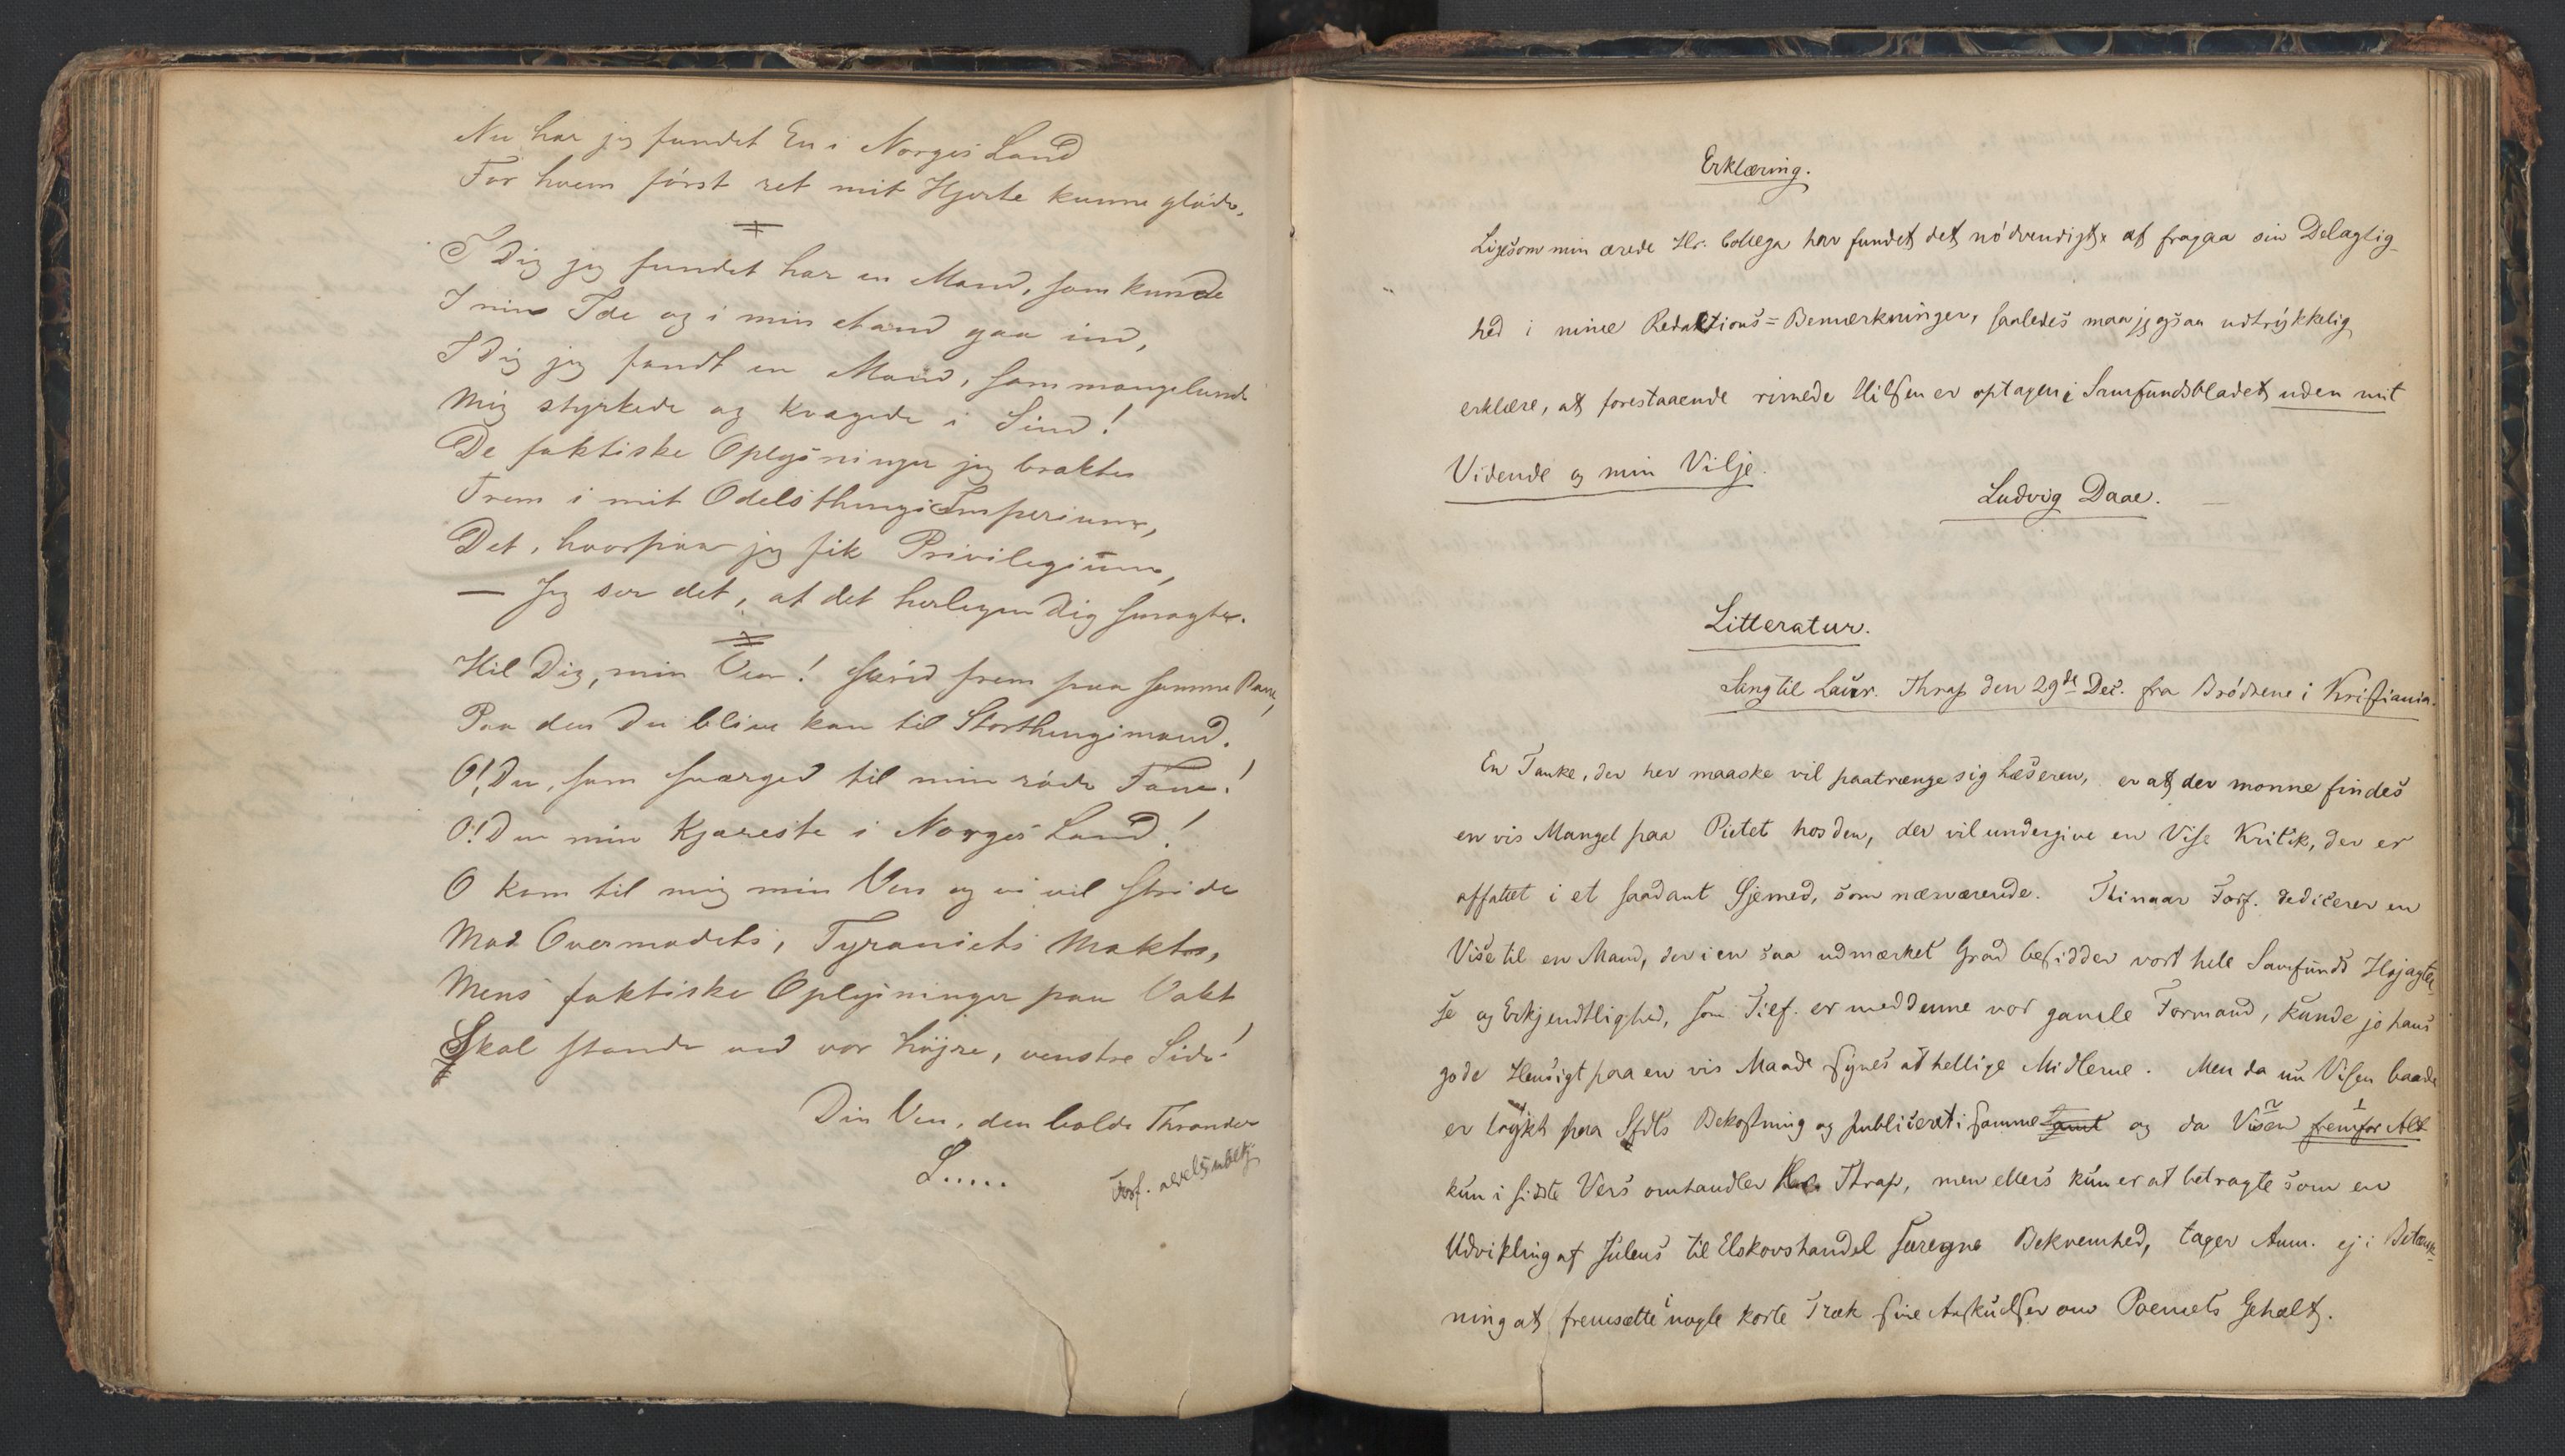 Nu har jeg fundet En i Norges Land
For hvem först ret mit Hjerte kunne glöde.
I Dig jeg fundet har en Mand, som kunde
I min Ide og i min Aand gaa ind,
I Dig jeg fandt en Mand, som mangelunde
Mig styrkede og kvægede i Sind!
De faktiske Oplysninger jeg bragte
Frem i mit Odelsthings Imperium,
Det, hvorpaa jeg fik Privilegium,
— Jeg ser det, at det herligen Dig smagte.
Hil Dig, min Ven! skrid frem paa samme Bane,
Paa den Du blive kan til Storthingsmand.
O! Du, som sværged til min röde Fane!
O! Du min Kjæreste i Norges Land!
O kom til mig min Ven og vi vil stride
Mod Overmodets, Tyraniets Makt,
Mens faktiske Oplysninger paa Vakt
Skal stande ved vor höjre, venstre Side!
Din Ven, den bolde Thronder
L.....
Forf. ubekj.
Erklæring.
Ligesom min ærede Hr. Collega har fundet det nödvendigt at fragaa sin Delagtig-
hed i mine Redaktions=Bemærkninger, saaledes maa jeg ogsaa udtrykkelig
erklære, at forestaaende rimede Hilsen er optagen i Samfundsbladet uden mit
Vidende og min Vilje.
Ludvig Daae. —
Litteratur.
Sang til Laur. Thrap den 29de Dec. fra Brödrene i Kristiania.
En Tanke, der her maaske vil paatrænge sig Læseren, er at der monne findes
en vis Mangel paa Pietet hos den, der vil undergive en Vise Kritik, der er
affattet i et saadant Öjemed, som nærværende. Thi naar Forf. dedicerer en
Vise til en Mand, der i en saa udmærket Grad besidder vort hele Samfunds Højagtel-
se og Erkjendtlighed, som Tilf. er med denne vor gamle Formand, kunde jo hans
gode Hensigt paa en vis Maade synes at hellige Midlerne. Men da nu Visen baade
er trykt paa Sfdts Bekostning og publiceret i samme samt og da Visen fremfor Alt
kun i sidste Vers omhandler Thrap, men ellers kun er at betragte som en
Udvikling af Julens til Elskovshandel særegne Bekvemhed, tager Anm. ej i Betænk-
ning at fremsætte i nogle korte Træk sine Anskuelser om Poemets Gehalt.